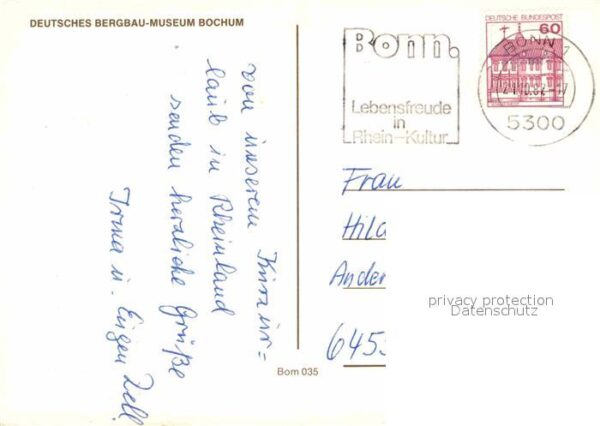 DEUTSCHES BERGBAU-MUSEUM BOCHUM
von unserem Kurzur=
laub in Rheinland
senden herzliche Grüße
Irma u. Eugen Zell
Bom 035
Bonn.
Lebensfreude
in
Rhein-Kultur
DEUTSCHE BUNDESPOST
60
BONN 1
5300
Frau
Hild
Ander
645
privacy protection
Datenschutz